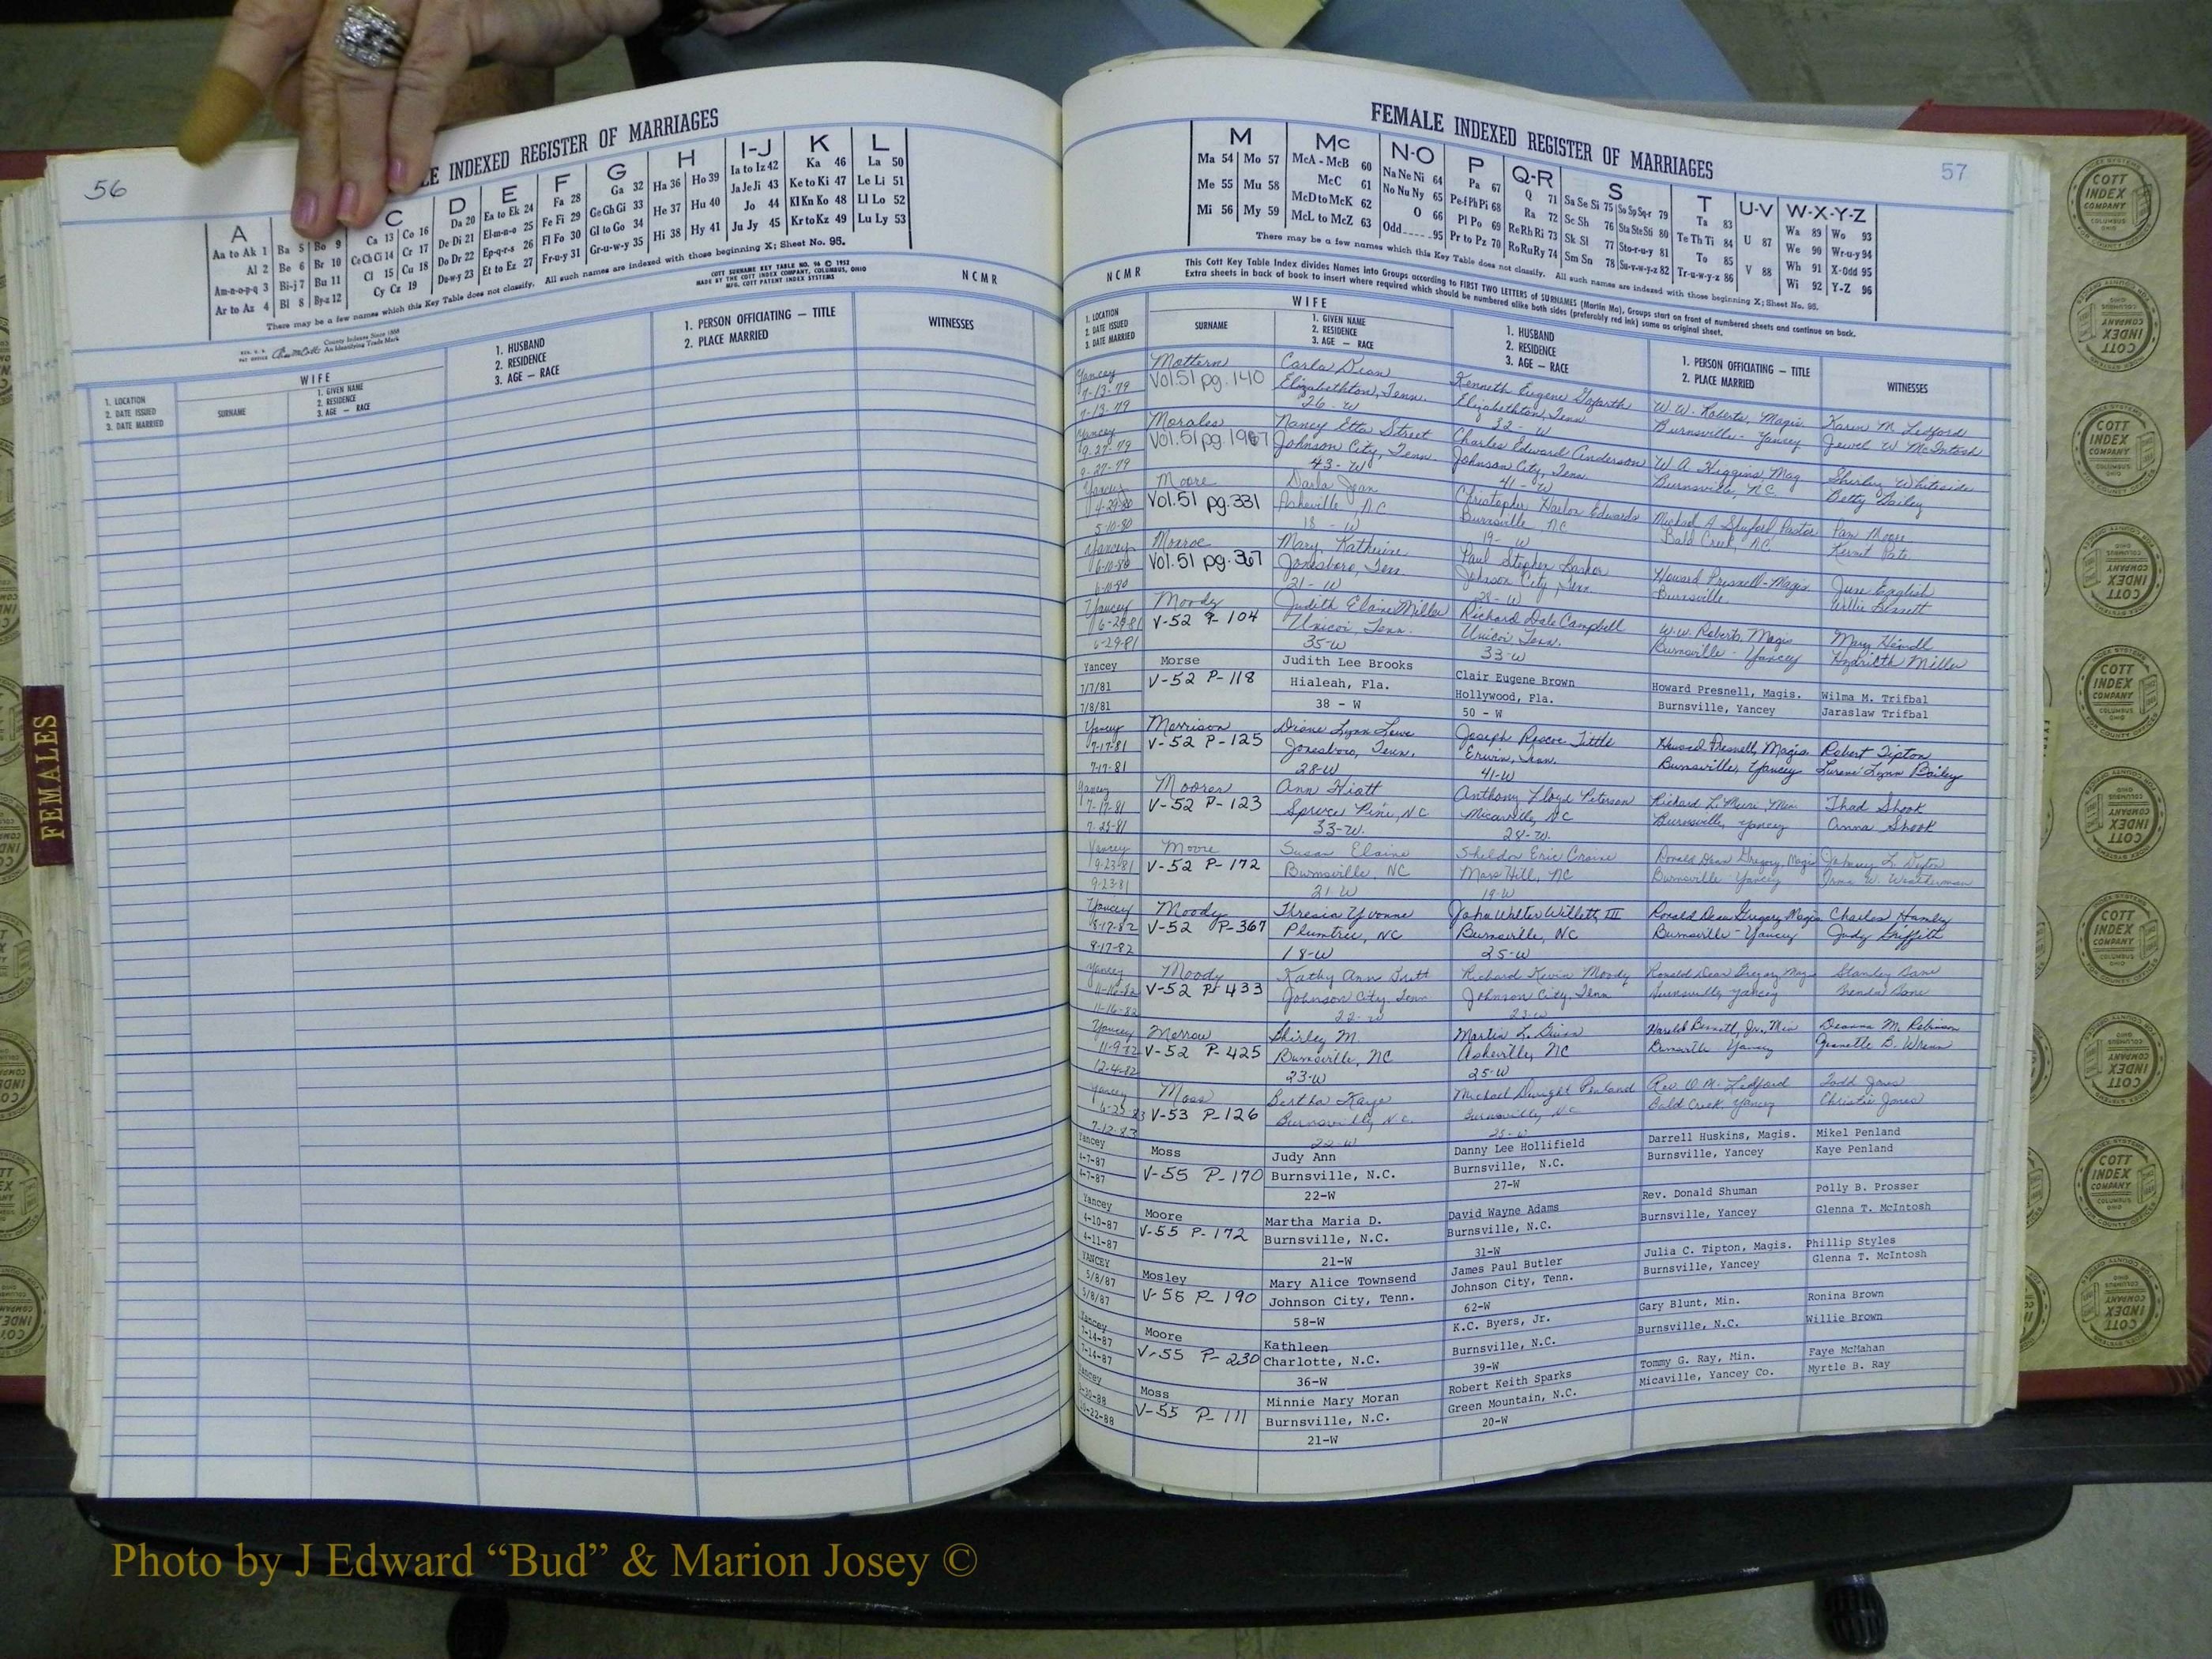 56
LE INDEXED REGISTER OF MARRIAGES
A
Aa to Ak 1
Al 2
Am-n-o-p-q 3
Ar to Az 4
Ba 5
Be 6
Bi-j 7
Bl 8
Bo 9
Br 10
Bu 11
By-z 12
C
Ca 13
Ce Ch Ci 14
Cl 15
Cy Cz 19
Co 16
Cr 17
Cu 18
D
Da 20
De Di 21
Do Dr 22
Du-w-y 23
E
Ea to Ek 24
El-m-n-o 25
Ep-q-r-s 26
Et to Ez 27
F
Fa 28
Fe Fi 29
Fl Fo 30
Fr-u-y 31
G
Ga 32
Ge Gh Gi 33
Gl to Go 34
Gr-u-w-y 35
H
Ha 36
He 37
Hi 38
Ho 39
Hu 40
Hy 41
I-J
Ia to Iz 42
Ja Je Ji 43
Jo 44
Ju Jy 45
K
Ka 46
Ke to Ki 47
Kl Kn Ko 48
Kr to Kz 49
L
La 50
Le Li 51
Ll Lo 52
Lu Ly 53
There may be a few names which this Key Table does not classify. All such names are indexed with those beginning X; Sheet No. 95.
COTT SURNAME KEY TABLE NO. 96 © 1952
MADE BY THE COTT INDEX COMPANY, COLUMBUS, OHIO
MFG. COTT PATENT INDEX SYSTEMS
NCMR
County Indexes Since 1888
An Identifying Trade Mark
1. LOCATION
2. DATE ISSUED
3. DATE MARRIED
WIFE
SURNAME
1. GIVEN NAME
2. RESIDENCE
3. AGE — RACE
1. HUSBAND
2. RESIDENCE
3. AGE — RACE
1. PERSON OFFICIATING — TITLE
2. PLACE MARRIED
WITNESSES
FEMALES
FEMALE INDEXED REGISTER OF MARRIAGES
57
M
Ma 54
Me 55
Mi 56
Mo 57
Mu 58
My 59
Mc
McA - McB 60
McC 61
McD to McK 62
McL to McZ 63
N-O
Na Ne Ni 64
No Nu Ny 65
O 66
Odd 95
P
Pa 67
Pe-f Ph Pi 68
Pl Po 69
Pr to Pz 70
Q-R
Q 71
Ra 72
Re Rh Ri 73
Ro Ru Ry 74
S
Sa Se Si 75
Sc Sh 76
Sk Sl 77
Sm Sn 78
So Sp Sq-r 79
Sta Ste Sti 80
Sto-r-u-y 81
Su-v-w-y-z 82
T
Ta 83
Te Th Ti 84
To 85
Tr-u-w-y-z 86
U-V
U 87
V 88
W-X-Y-Z
Wa 89
We 90
Wh 91
Wi 92
Wo 93
Wr-u-y 94
X-Odd 95
Y-Z 96
There may be a few names which this Key Table does not classify. All such names are indexed with those beginning X; Sheet No. 95.
NCMR
This Cott Key Table Index divides Names into Groups according to FIRST TWO LETTERS of SURNAMES (Martin Ma). Groups start on front of numbered sheets and continue on back.
Extra sheets in back of book to insert where required which should be numbered alike both sides (preferably red ink) same as original sheet.
1. LOCATION
2. DATE ISSUED
3. DATE MARRIED
WIFE
SURNAME
1. GIVEN NAME
2. RESIDENCE
3. AGE — RACE
1. HUSBAND
2. RESIDENCE
3. AGE — RACE
1. PERSON OFFICIATING — TITLE
2. PLACE MARRIED
WITNESSES
Yancey Mottern Carla Dean Kenneth Eugene W.W. Roberts, Magis. Karen M. Ledford
7-13-79 Vol.51 pg.140 Elizabethton, Tenn. Elizabethton, Tenn Burnsville - Yancey Jewel W McIntosh
7-13-79 26-W 32-W
Yancey Morales Nancy Etta Street Charles Edward Anderson W A Higgins Mag Shirley Whiteside
9-27-79 Vol.51 pg.1967 Johnson City, Tenn Johnson City, Tenn Burnsville, NC Betty Bailey
9-27-79 43-W 41-W
Yancey Moore Darla Jean Christopher Harlon Edwards Michael A Shuford Pastor Pam Moore
4-29-80 Vol.51 pg.331 Asheville, NC Burnsville NC Bald Creek, NC Kermit Pate
5-10-80 18-W 19-W
Yancey Monroe Mary Katherine Paul Stephen Howard Presnell-Magis June English
6-10-80 Vol.51 pg.367 Jonesboro, Tenn Johnson City, Tenn. Burnsville Willie Bennett
6-10-80 21-W 28-W
Yancey Moody Judith Elaine Miller Richard Dale Campbell W.W. Roberts, Magis Mary
6-29-81 V-52 P-104 Unicoi, Tenn. Unicoi Tenn. Burnsville - Yancey Miller
6-29-81 35-W 33-W
Yancey Morse Judith Lee Brooks Clair Eugene Brown Howard Presnell, Magis. Wilma M. Trifbal
7/7/81 V-52 P-118 Hialeah, Fla. Hollywood, Fla. Burnsville, Yancey Jaraslaw Trifbal
7/8/81 38 - W 50 - W
Yancey Morrison Diane Lynn Lowe Joseph Roscoe Tittle Howard Presnell, Magis Robert Tipton
7-17-81 V-52 P-125 Jonesboro, Tenn. Erwin, Tenn. Burnsville, Yancey Lynn Bailey
7-17-81 28-W 41-W
Yancey Moorer Ann Hiott Anthony Floyd Peterson Richard L. Min Thad Shook
7-17-81 V-52 P-123 Spruce Pine, NC Micaville, NC Burnsville, Yancey Anna Shook
7-25-81 33-W. 28-W.
Yancey Moore Susan Elaine Sheldon Eric Craine Ronald Dean Gregory, Magis Johnny L. Deyton
9-23-81 V-52 P-172 Burnsville, NC Mars Hill, NC Burnsville Yancey Irma W. Weatherman
9-23-81 21-W 19-W
Yancey Moody Thresia Yvonne John Walter Willett, III Ronald Dean Gregory Magis Charles Hamby
8-17-82 V-52 P-367 Plumtree, NC Burnsville, NC Burnsville - Yancey Judy Griffith
8-17-82 18-W 25-W
Yancey Moody Kathy Ann Britt Richard Kevin Moody Ronald Dean Gregory Mag Stanley Bane
11-16-82 V-52 P-433 Johnson City, Tenn Johnson City, Tenn Burnsville, Yancey Brenda Bane
11-16-82 22-W 23-W
Yancey Morrow Shirley M. Martin L. Harold Bennett, Jr., Min Deanna M. Robinson
11-9-82 V-52 P-425 Burnsville, NC Asheville, NC Burnsville Yancey Jeanette B. Wrenn
12-4-82 23-W 25-W
Yancey Moss Bertha Kaye Michael Dwight Penland Rev. O.M. Ledford Todd Jones
6-23-83 V-53 P-126 Burnsville, N.C. Burnsville, N.C. Bald Creek, Yancey Christie Jones
7-12-83 22-W 25-W
Yancey Moss Judy Ann Danny Lee Hollifield Darrell Huskins, Magis. Mikel Penland
4-7-87 V-55 P-170 Burnsville, N.C. Burnsville, N.C. Burnsville, Yancey Kaye Penland
4-7-87 22-W 27-W
Yancey Moore Martha Maria D. David Wayne Adams Rev. Donald Shuman Polly B. Prosser
4-10-87 V-55 P-172 Burnsville, N.C. Burnsville, N.C. Burnsville, Yancey Glenna T. McIntosh
4-11-87 21-W 31-W
YANCEY Mosley Mary Alice Townsend James Paul Butler Julia C. Tipton, Magis. Phillip Styles
5/8/87 V-55 P-190 Johnson City, Tenn. Johnson City, Tenn. Burnsville, Yancey Glenna T. McIntosh
5/8/87 58-W 62-W
Yancey Moore Kathleen K.C. Byers, Jr. Gary Blunt, Min. Ronina Brown
7-14-87 V-55 P-230 Charlotte, N.C. Burnsville, N.C. Burnsville, N.C. Willie Brown
7-14-87 36-W 39-W
Yancey Moss Minnie Mary Moran Robert Keith Sparks Tommy G. Ray, Min. Faye McMahan
V-55 P-111 Burnsville, N.C. Green Mountain, N.C. Micaville, Yancey Co. Myrtle B. Ray
10-22-88 21-W 20-W
COTT INDEX COMPANY COLUMBUS OHIO
Photo by J Edward “Bud” & Marion Josey ©